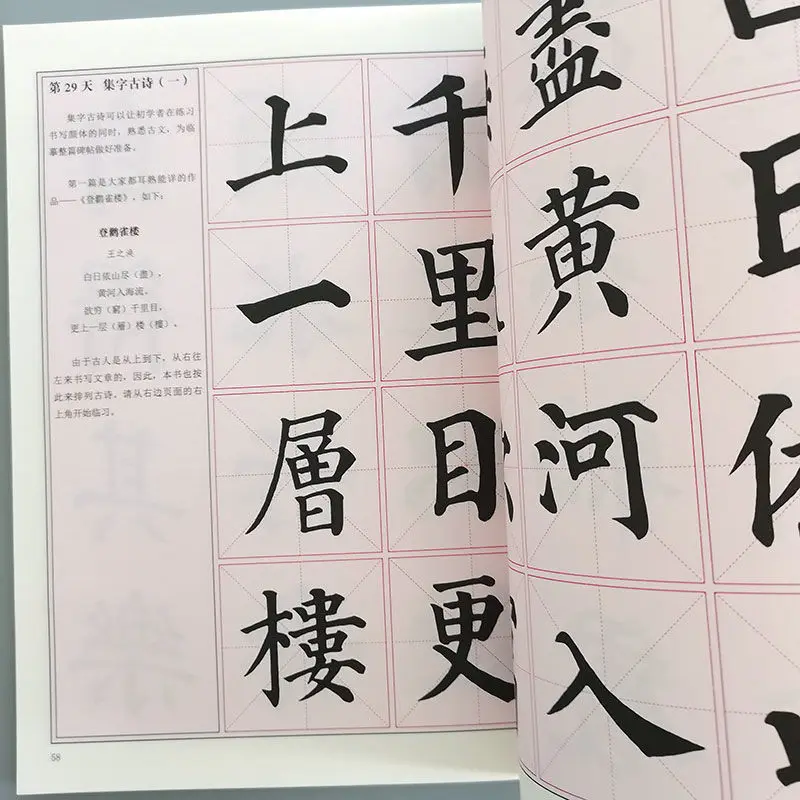 第 29 天 集字古诗（一）
集字古诗可以让初学者在练习
书写颜体的同时，熟悉古文，为临
摹整篇碑帖做好准备。
第一篇是大家都耳熟能详的作
品——《登鹳雀楼》，如下：
登鹳雀楼
王之涣
白日依山尽（盡），
黄河入海流。
欲穷（窮）千里目，
更上一层（層）楼（樓）。
由于古人是从上到下，从右往
左来书写文章的，因此，本书也按
此来排列古诗。请从右边页面的右
上角开始临习。
盡黄河入
千里目更
上一層樓
58